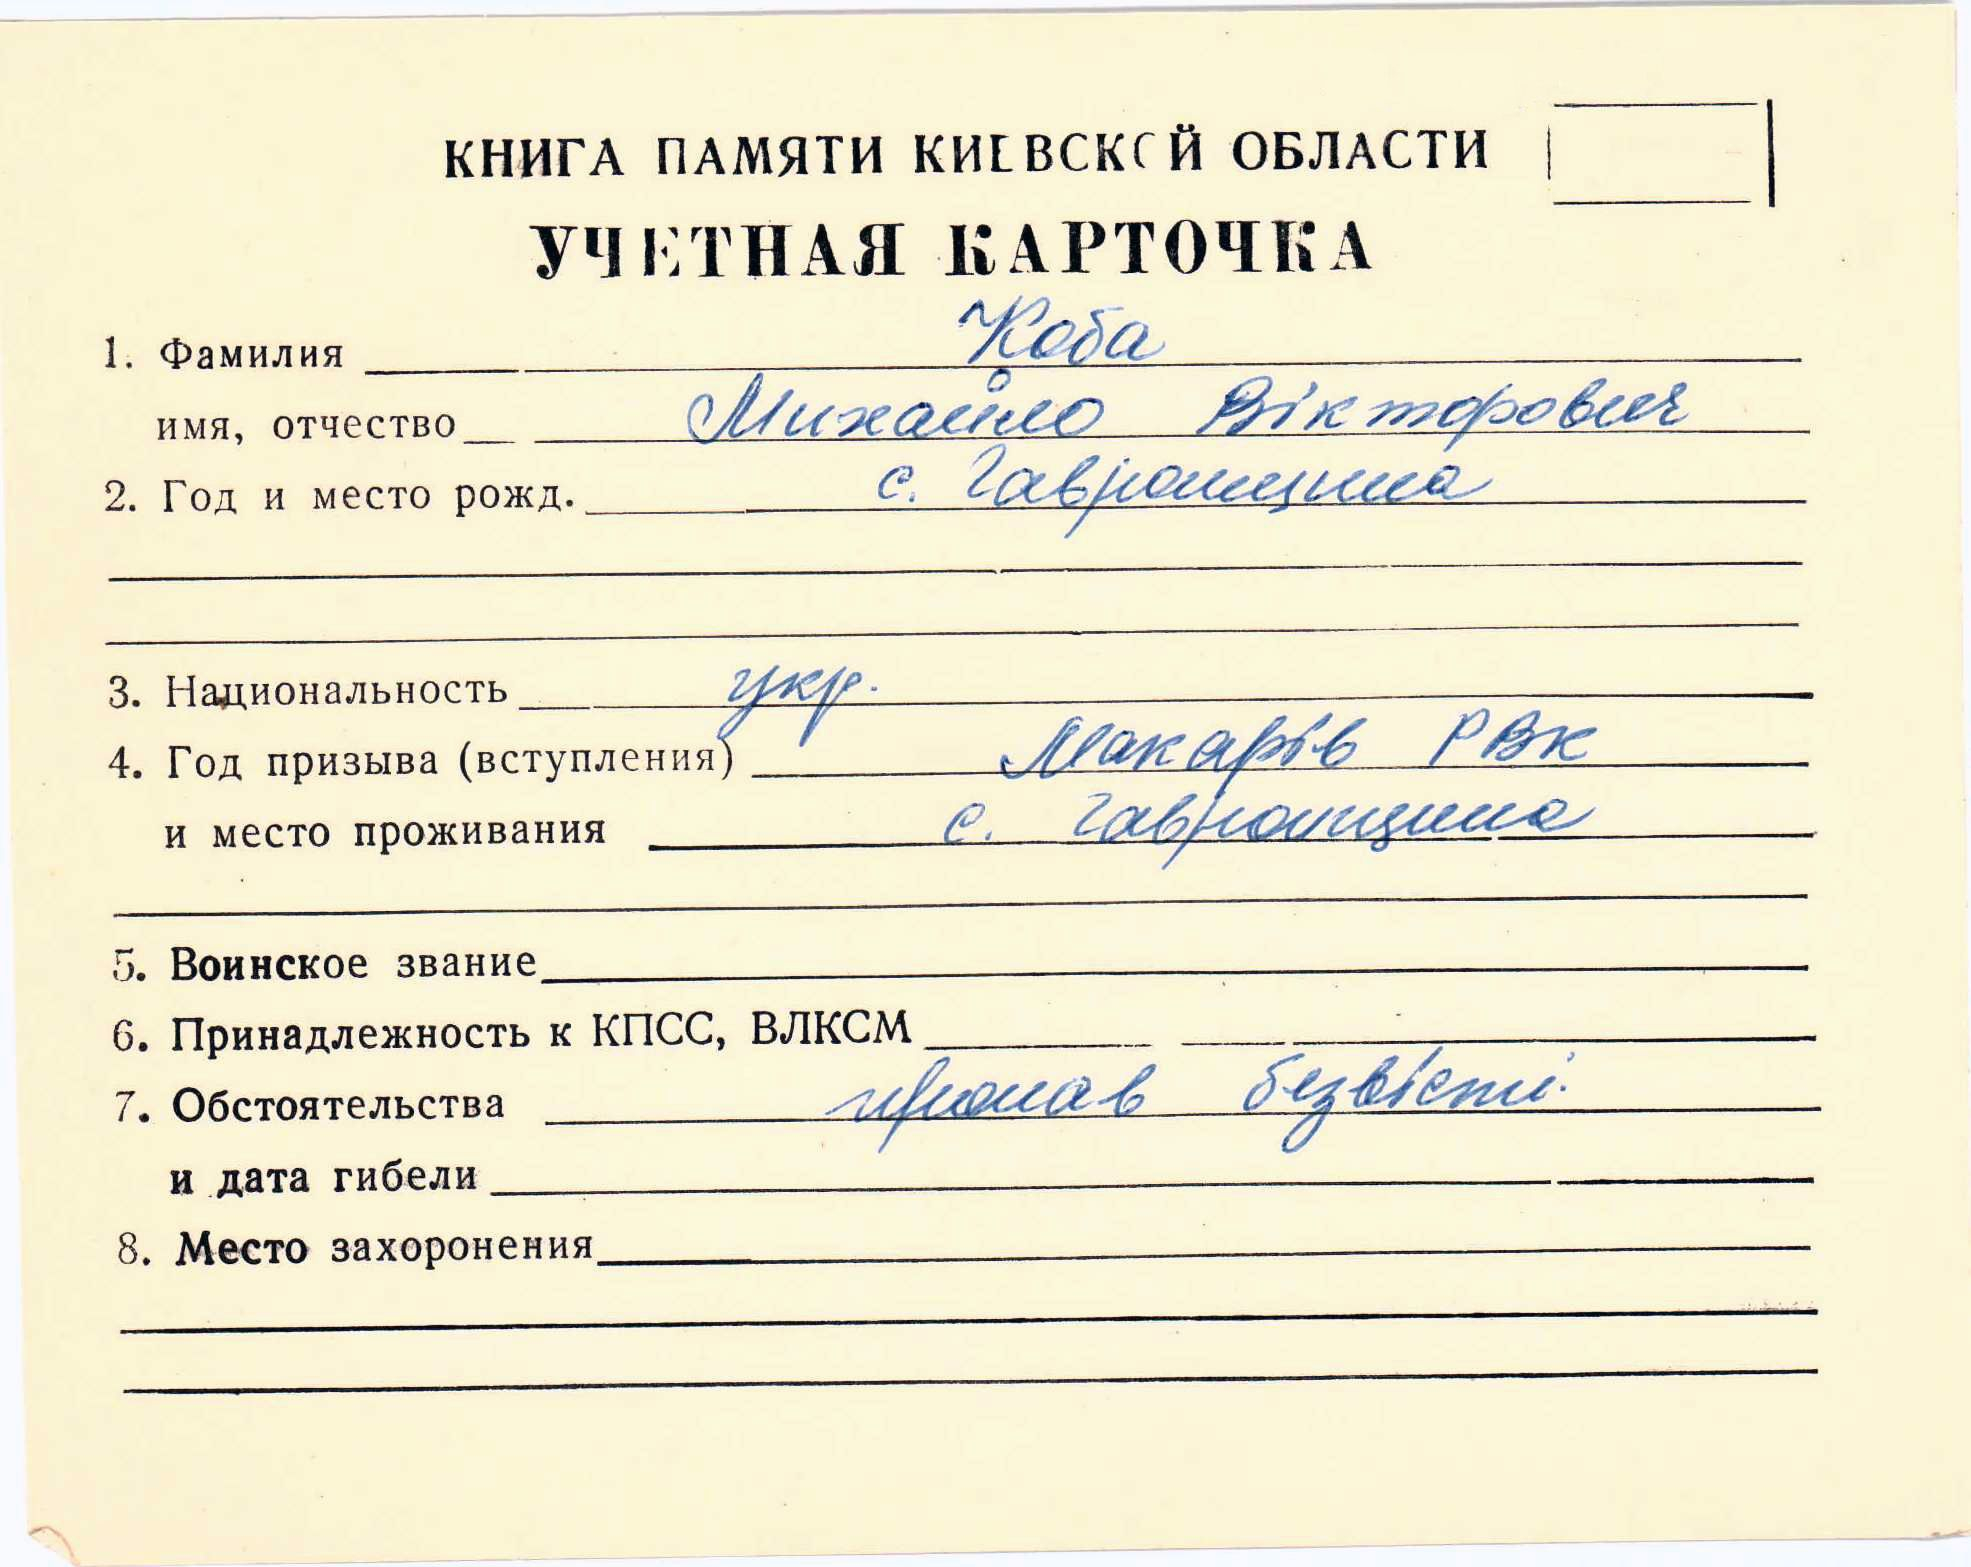 КНИГА ПАМЯТИ КИЕВСКОЙ ОБЛАСТИ
УЧЕТНАЯ КАРТОЧКА
1. Фамилия Коба
имя, отчество Михайло Вікторович
2. Год и место рожд. с. Гавронщина
3. Национальность укр.
4. Год призыва (вступления) Макарів РВК
и место проживания с. Гавронщина
5. Воинское звание
6. Принадлежность к КПСС, ВЛКСМ
7. Обстоятельства пропав безвісті.
и дата гибели
8. Место захоронения